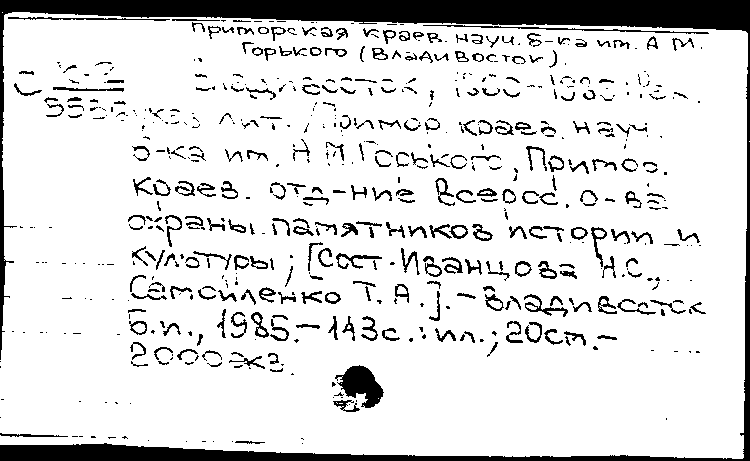 Приморская краев. науч. б-ка им. А.М.
Горького (Владивосток).
К-2 Владивосток, 1860-1985: Рек.
указ. лит. / Примор. краев. науч.
б-ка им. А.М. Горького, Примор.
краев. отд-ние Всерос. о-ва
охраны памятников истории и
культуры; [Сост. Иванцова Н.С.,
Самойленко Т.А.]. - Владивосток
Б.и., 1985. - 143с.: ил.; 20см. -
2000экз.